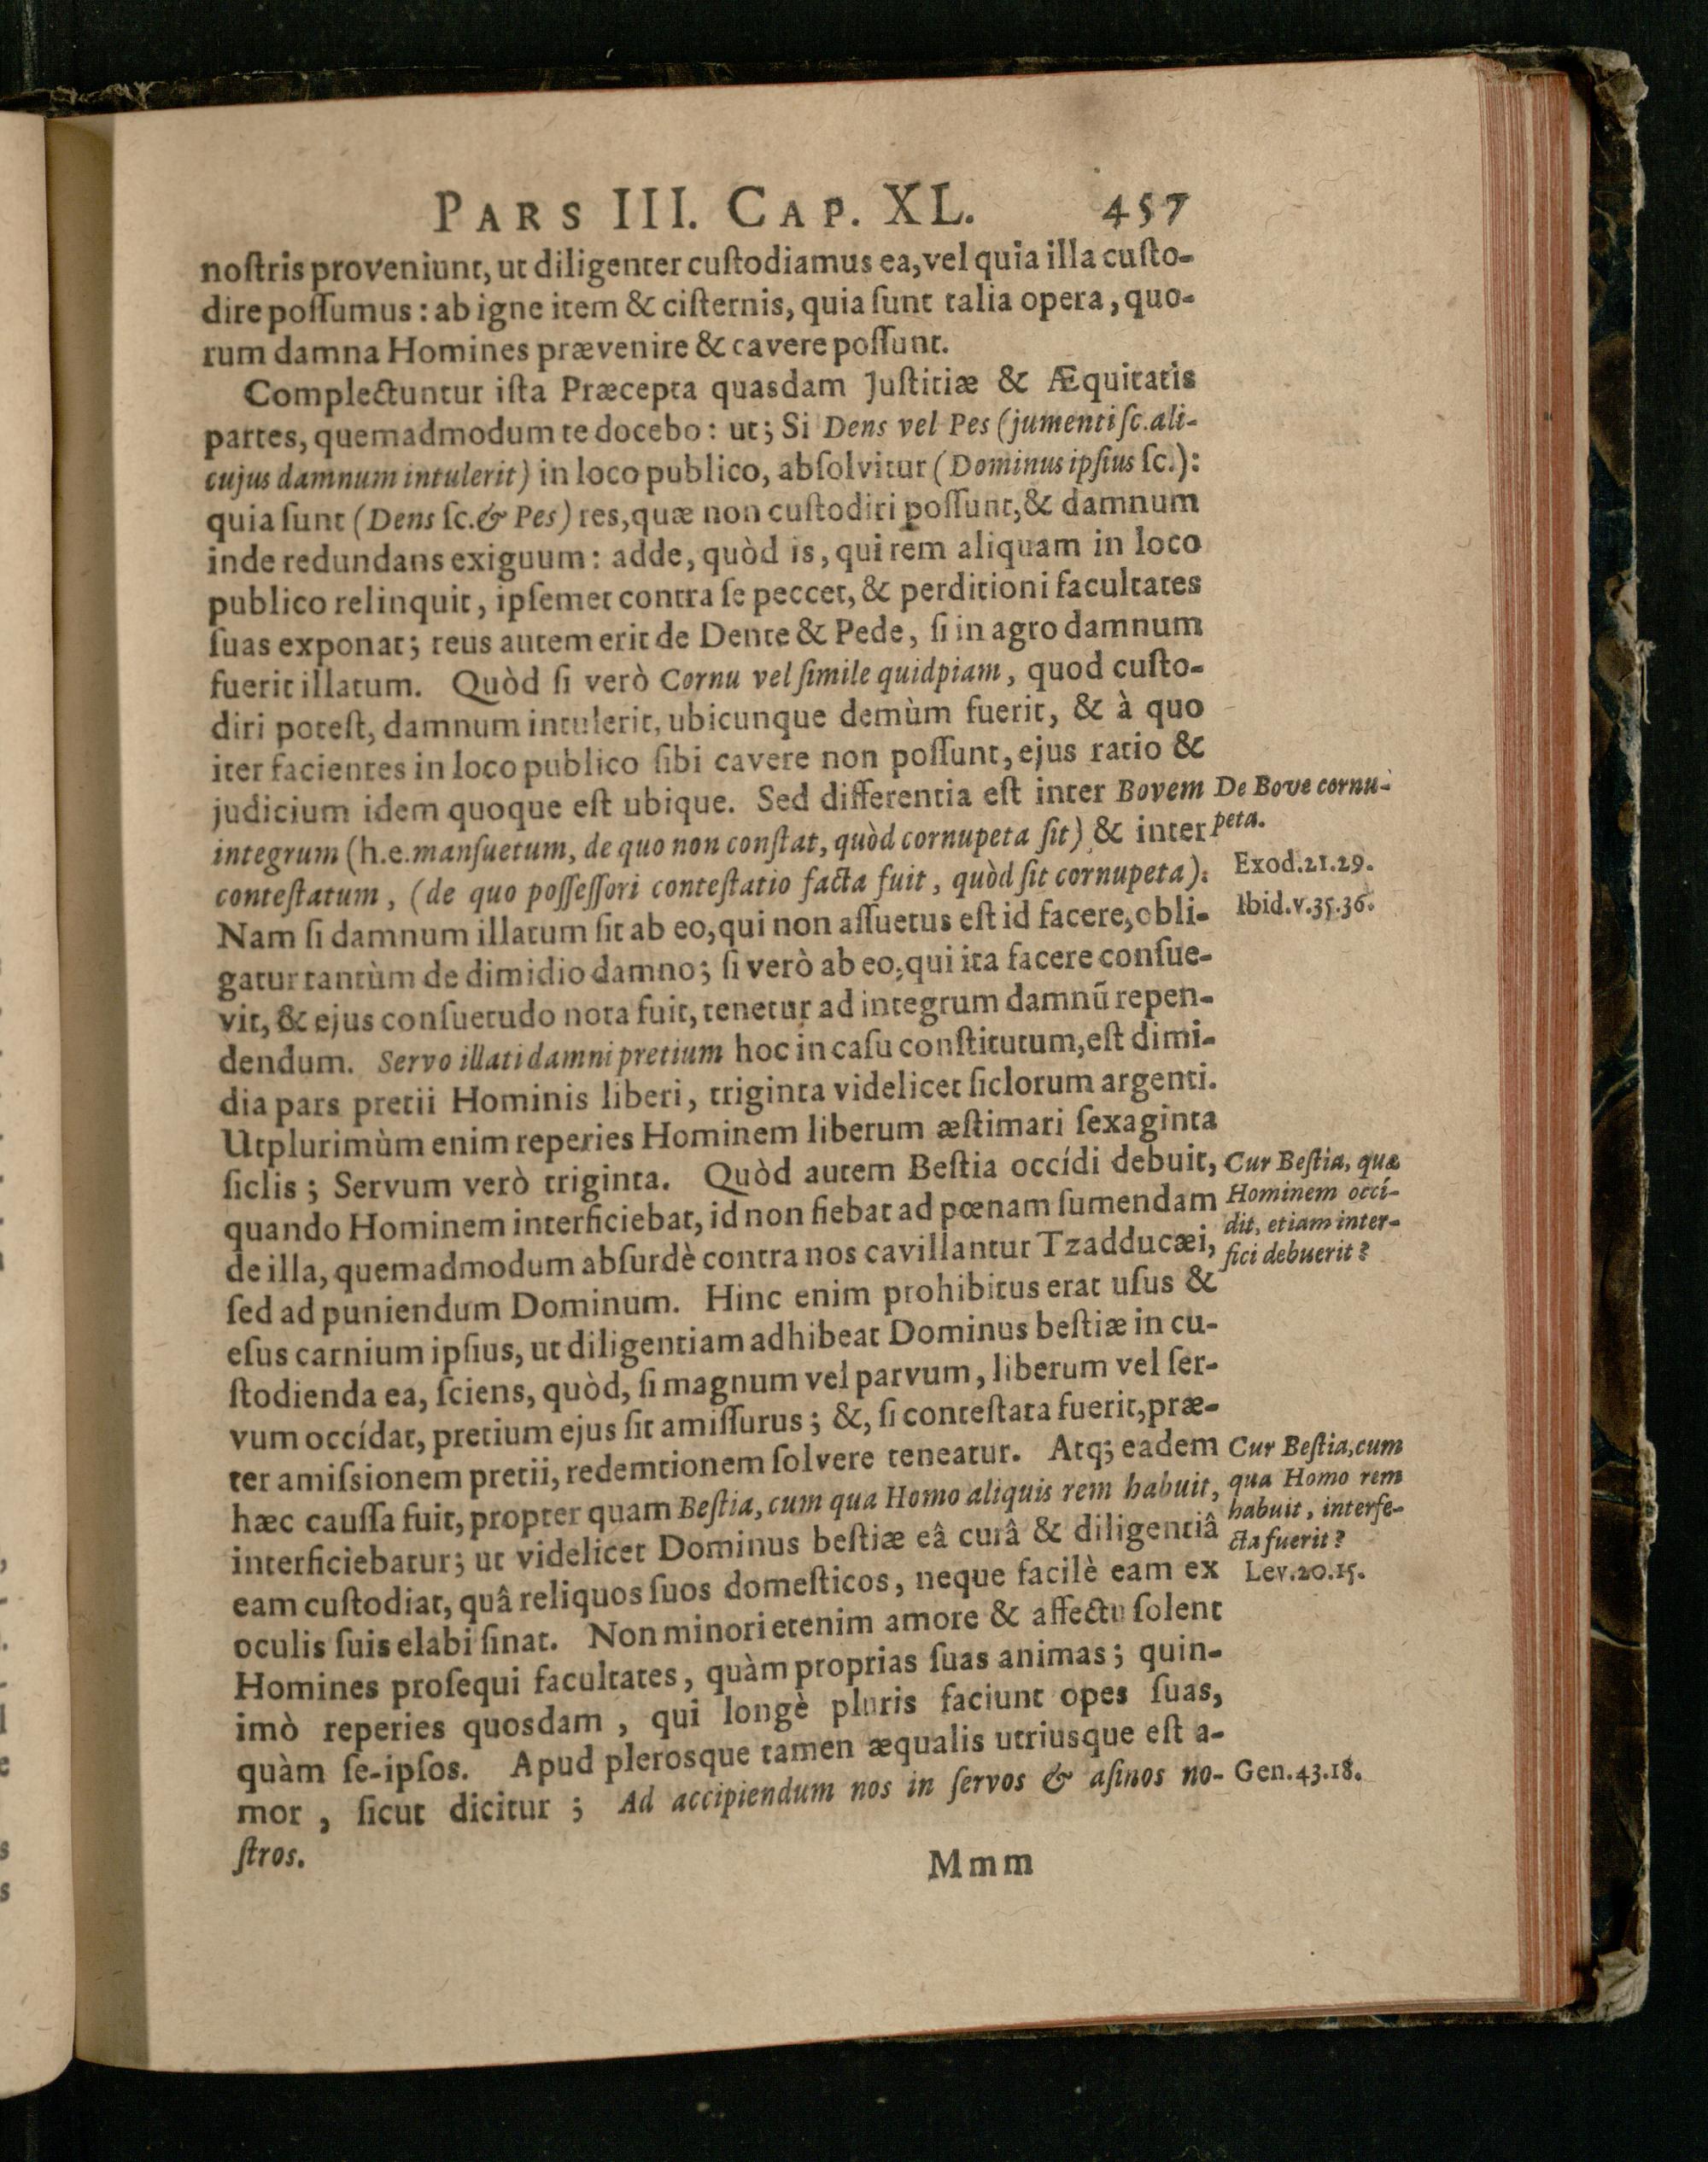 PARS III. CAP. XL. 457
noſtris proveniunt, ut diligenter cuſtodiamus ea, vel quia illa cuſto-
dire poſſumus: ab igne item & ciſternis, quia ſunt talia opera, quo-
rum damna Homines prævenire & cavere poſſunt.
Complectuntur iſta Præcepta quasdam Juſtitiæ & Æquitatis
partes, quemadmodum te docebo: ut; Si Dens vel Pes (jumenti ſc. ali-
cujus damnum intulerit) in loco publico, abſolvitur (Dominus ipſius ſc.):
quia ſunt (Dens ſc. & Pes) res, quæ non cuſtodiri poſſunt, & damnum
inde redundans exiguum: adde, quòd is, qui rem aliquam in loco
publico relinquit, ipſemet contra ſe peccet, & perditioni facultates
ſuas exponat; reus autem erit de Dente & Pede, ſi in agro damnum
fuerit illatum. Quòd ſi verò Cornu vel ſimile quidpiam, quod cuſto-
diri poteſt, damnum intulerit, ubicunque demùm fuerit, & à quo
iter facientes in loco publico ſibi cavere non poſſunt, ejus ratio &
judicium idem quoque eſt ubique. Sed differentia eſt inter Bovem
De Bove cornu-
peta.
integrum (h.e. manſuetum, de quo non conſtat, quòd cornupeta ſit) & inter
Exod.21.29.
conteſtatum, (de quo poſſeſſori conteſtatio facta fuit, quòd ſit cornupeta):
Ibid.v.35.36.
Nam ſi damnum illatum ſit ab eo, qui non aſſuetus eſt id facere, obli-
gatur tantùm de dimidio damno; ſi verò ab eo, qui ita facere conſue-
vit, & ejus conſuetudo nota fuit, tenetur ad integrum damnũ repen-
dendum. Servo illati damni pretium hoc in caſu conſtitutum, eſt dimi-
dia pars pretii Hominis liberi, triginta videlicet ſiclorum argenti.
Utplurimùm enim reperies Hominem liberum æſtimari ſexaginta
ſiclis; Servum verò triginta. Quòd autem Beſtia occídi debuit,
Cur Beſtia, quæ
Hominem occí-
dit, etiam inter-
fici debuerit?
quando Hominem interficiebat, id non fiebat ad pœnam ſumendam
de illa, quemadmodum abſurdè contra nos cavillantur Tzadducæi,
ſed ad puniendum Dominum. Hinc enim prohibitus erat uſus &
eſus carnium ipſius, ut diligentiam adhibeat Dominus beſtiæ in cu-
ſtodienda ea, ſciens, quòd, ſi magnum vel parvum, liberum vel ſer-
vum occídat, pretium ejus ſit amiſſurus; &, ſi conteſtata fuerit, præ-
ter amiſsionem pretii, redemtionem ſolvere teneatur. Atq; eadem
Cur Beſtia, cum
qua Homo rem
habuit, interfe-
cta fuerit?
Lev.20.15.
hæc cauſſa fuit, propter quam Beſtia, cum qua Homo aliquis rem habuit,
interficiebatur; ut videlicet Dominus beſtiæ eâ curâ & diligentiâ
eam cuſtodiat, quâ reliquos ſuos domeſticos, neque facilè eam ex
oculis ſuis elabi ſinat. Non minori etenim amore & affectu ſolent
Homines proſequi facultates, quàm proprias ſuas animas; quin-
imò reperies quosdam, qui longè pluris faciunt opes ſuas,
quàm ſe-ipſos. Apud plerosque tamen æqualis utriusque eſt a-
mor, ſicut dicitur; Ad accipiendum nos in ſervos & aſinos no-
Gen.43.18.
ſtros.
Mmm